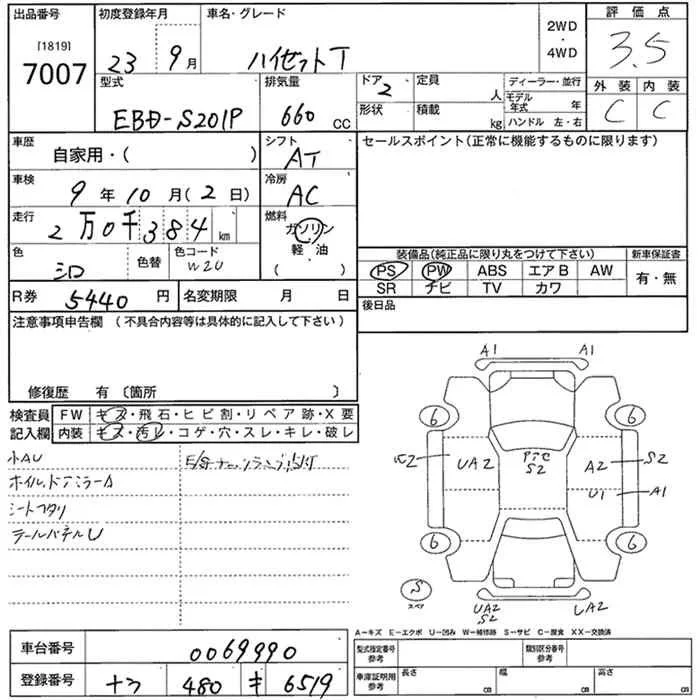 出品番号
[1819]
7007
初度登録年月
23 9月
車名・グレード
ハイゼットT
2WD
・
4WD
評価点
3.5
型式
EBD-S201P
排気量
660 CC
ドア
2
定員
人
ディーラー・並行
モデル年式 年
形状
積載
kg
ハンドル 左・右
外装 内装
C C
車歴
自家用・( )
シフト
AT
セールスポイント(正常に機能するものに限ります)
車検
9年10月(2日)
冷房
AC
走行
2万0千384km
燃料
ガソリン
軽・油
( )
色
シロ
色替
色コード
W20
装備品(純正品に限り丸をつけて下さい)
新車保証書
PS PW ABS エアB AW
有・無
SR ナビ TV カワ
R券 5440円
名変期限 月 日
後日品
注意事項申告欄 (不具合内容等は具体的に記入して下さい)
修復歴 有 〔箇所 〕
検査員 FW キズ・飛石・ヒビ割・リペア跡・X要
記入欄 内装 キズ・汚レ・コゲ・穴・スレ・キレ・破レ
小AU
ホイル、ドアミラーA
シートヘタリ
テールパネルU
A1 A1
6 6
UA2 S2 A2 S2
U1 A1
6 6
S
スペア
UA2
S2
UA2
A－キズ E－エクボ U－凹み W－補修跡 S－サビ C－腐食 XX－交換済
車台番号 0069990
登録番号 480 キ 6519
型式指定番号
参考
類別区分番号
参考
車庫証明用
参考
長さ cm
幅 cm
高さ cm